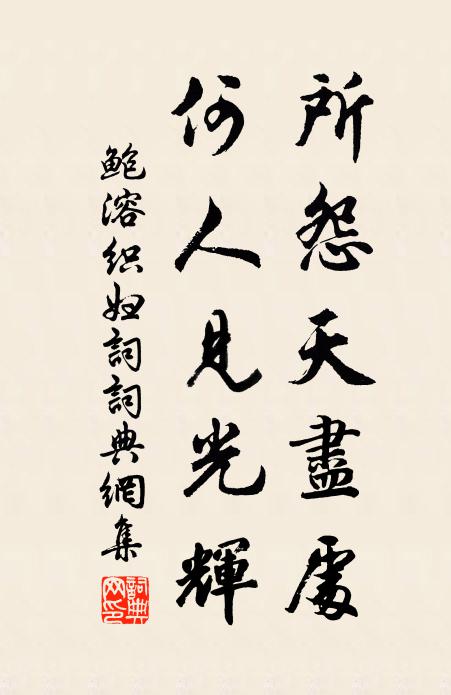 所怨天盡處
何人見光輝
鮑溶織婦詞詞典網集
詞典網印